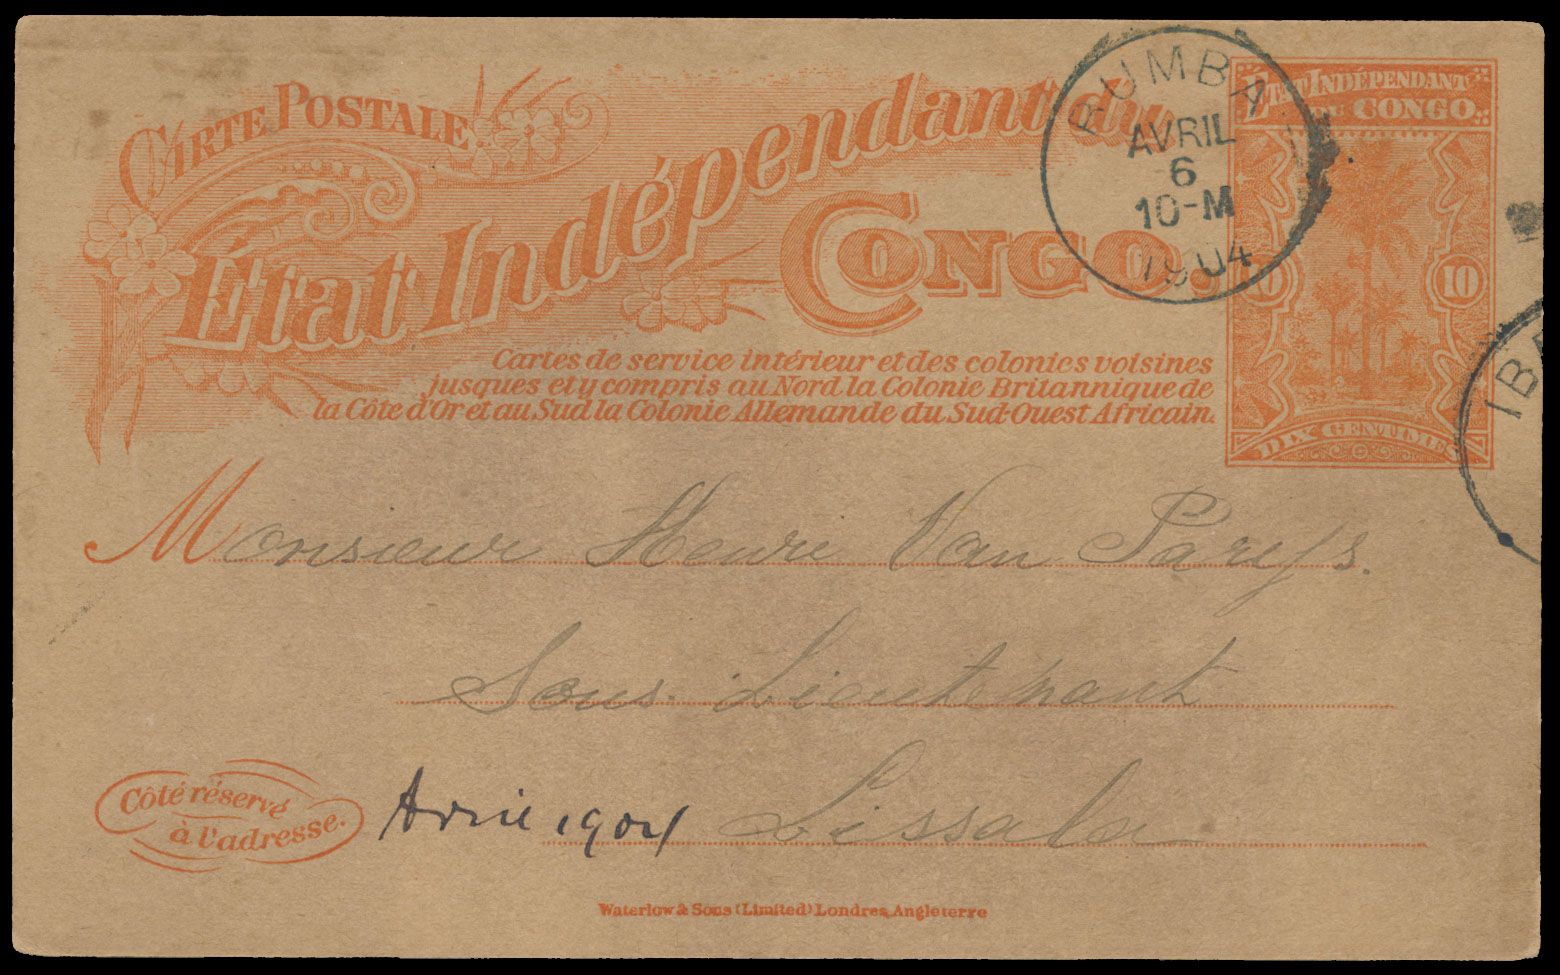 CARTE POSTALE
État Indépendant du
CONGO.
BUMBA
AVRIL
6
10-M
1904
ETAT INDÉPENDANT
DU CONGO.
10 10
DIX CENTIMES
Cartes de service intérieur et des colonies voisines
jusques et y compris au Nord la Colonie Britannique de
la Côte d'Or et au Sud la Colonie Allemande du Sud-Ouest Africain.
Monsieur Henri Van Parijs.
Sous-Lieutenant
Côté réservé
à l'adresse.
Avril 1904 Lissala
Waterlow & Sons (Limited) Londres, Angleterre